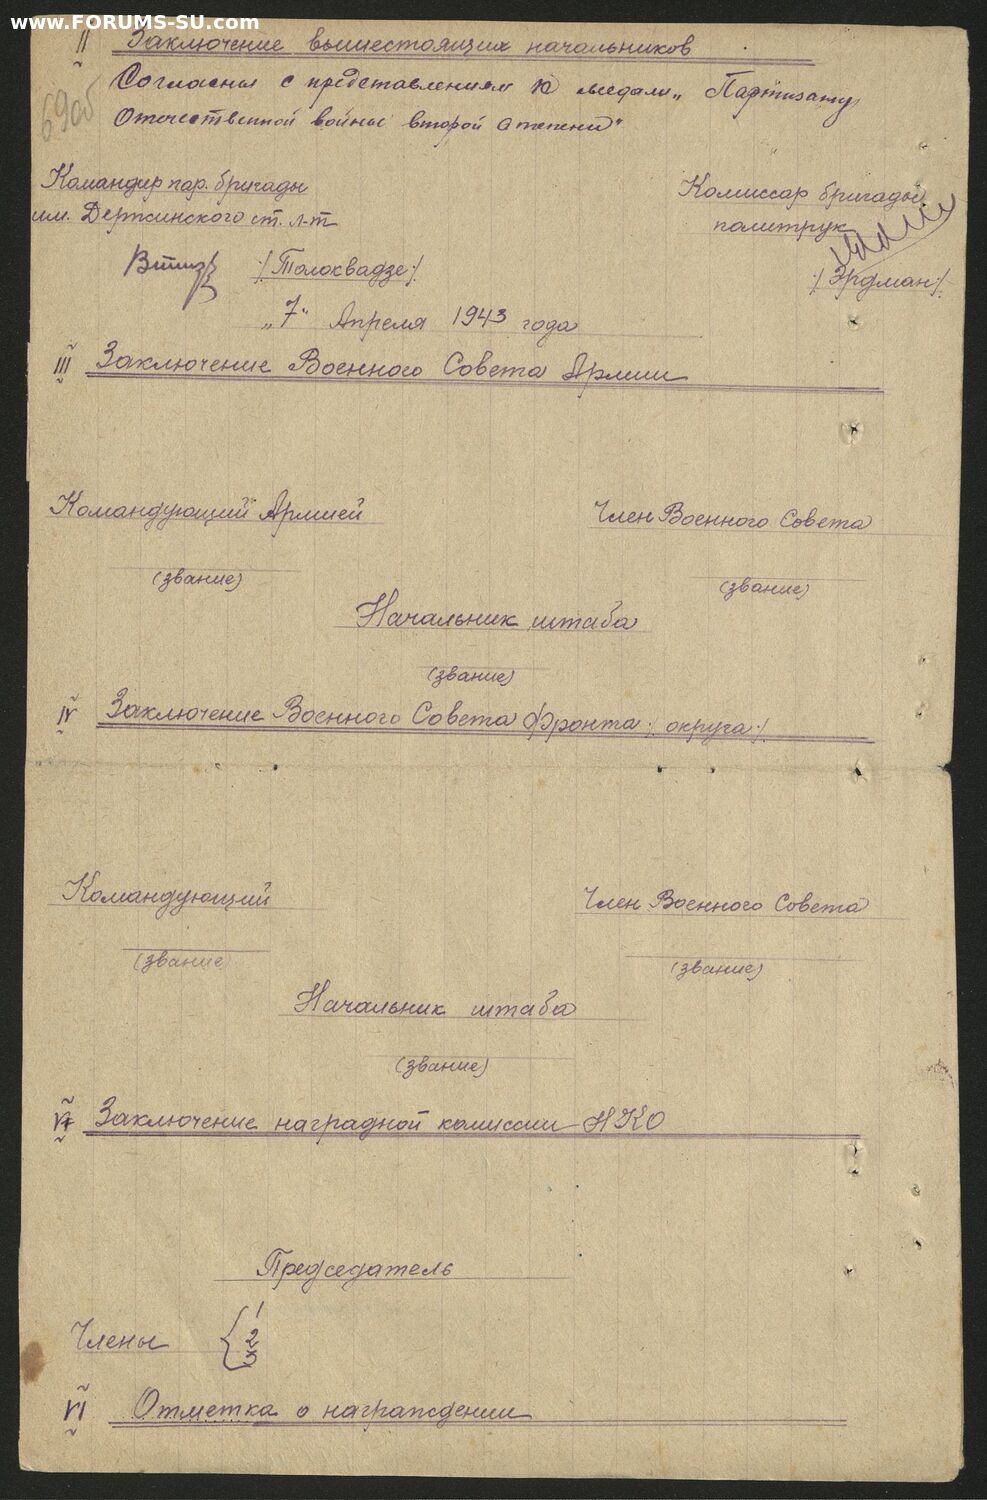 www.FORUMS-SU.com
II Заключение вышестоящих начальников
Согласны с представлением к медали „Партизану
Отечественной войны второй степени"
69об
Командир пар. бригады
им. Держинского ст. л-т
/Толоквадзе/
Комиссар бригады
политрук
/Эрдман/
„7" Апреля 1943 года
III Заключение Военного Совета Армии
Командующий Армией
Член Военного Совета
(звание)
(звание)
Начальник штаба
(звание)
IV Заключение Военного Совета Фронта /округа/
Командующий
Член Военного Совета
(звание)
(звание)
Начальник штаба
(звание)
V Заключение наградной комиссии НКО
Председатель
Члены { 1
2
3
VI Отметка о награждении